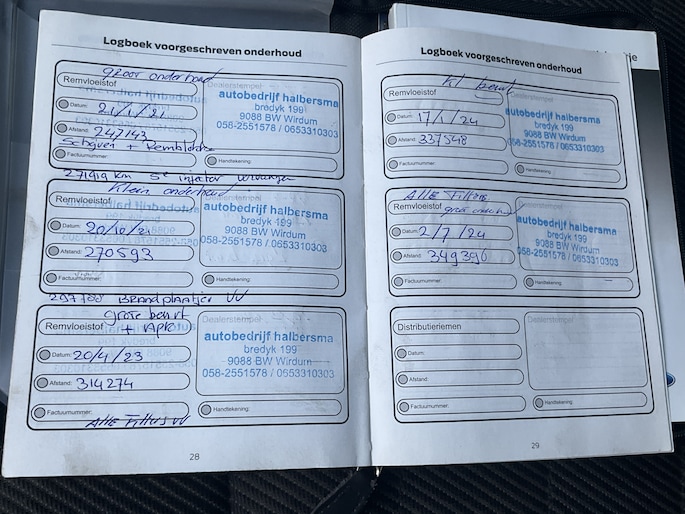 Logboek voorgeschreven onderhoud
groot onderhoud
Remvloeistof
Dealerstempel:
autobedrijf halbersma
bredyk 199
9088 BW Wirdum
058-2551578 / 0653310303
Datum: 21/1/21
Afstand: 247143
Schijven + Remblokken
Factuurnummer:
Handtekening:
271919 km 5e injector vervangen
Klein onderhoud
Remvloeistof
autobedrijf halbersma
bredyk 199
9088 BW Wirdum
058-2551578 / 0653310303
Datum: 20/10/21
Afstand: 270593
Factuurnummer:
Handtekening:
Brandplaatjes VV
grote beurt
Remvloeistof + Apk
Dealerstempel:
autobedrijf halbersma
bredyk 199
9088 BW Wirdum
058-2551578 / 0653310303
Datum: 20/4/23
Afstand: 314274
Factuurnummer:
Handtekening:
Alle Filters VV
28
Logboek voorgeschreven onderhoud
kl beurt
Remvloeistof
Dealerstempel:
autobedrijf halbersma
bredyk 199
9088 BW Wirdum
058-2551578 / 0653310303
Datum: 17/1/24
Afstand: 337548
Factuurnummer:
Handtekening:
Alle Filters
Remvloeistof groot onderhoud
autobedrijf halbersma
bredyk 199
9088 BW Wirdum
058-2551578 / 0653310303
Datum: 2/7/24
Afstand: 349396
Factuurnummer:
Handtekening:
Distributieriemen
Dealerstempel:
Datum:
Afstand:
Factuurnummer:
Handtekening:
29